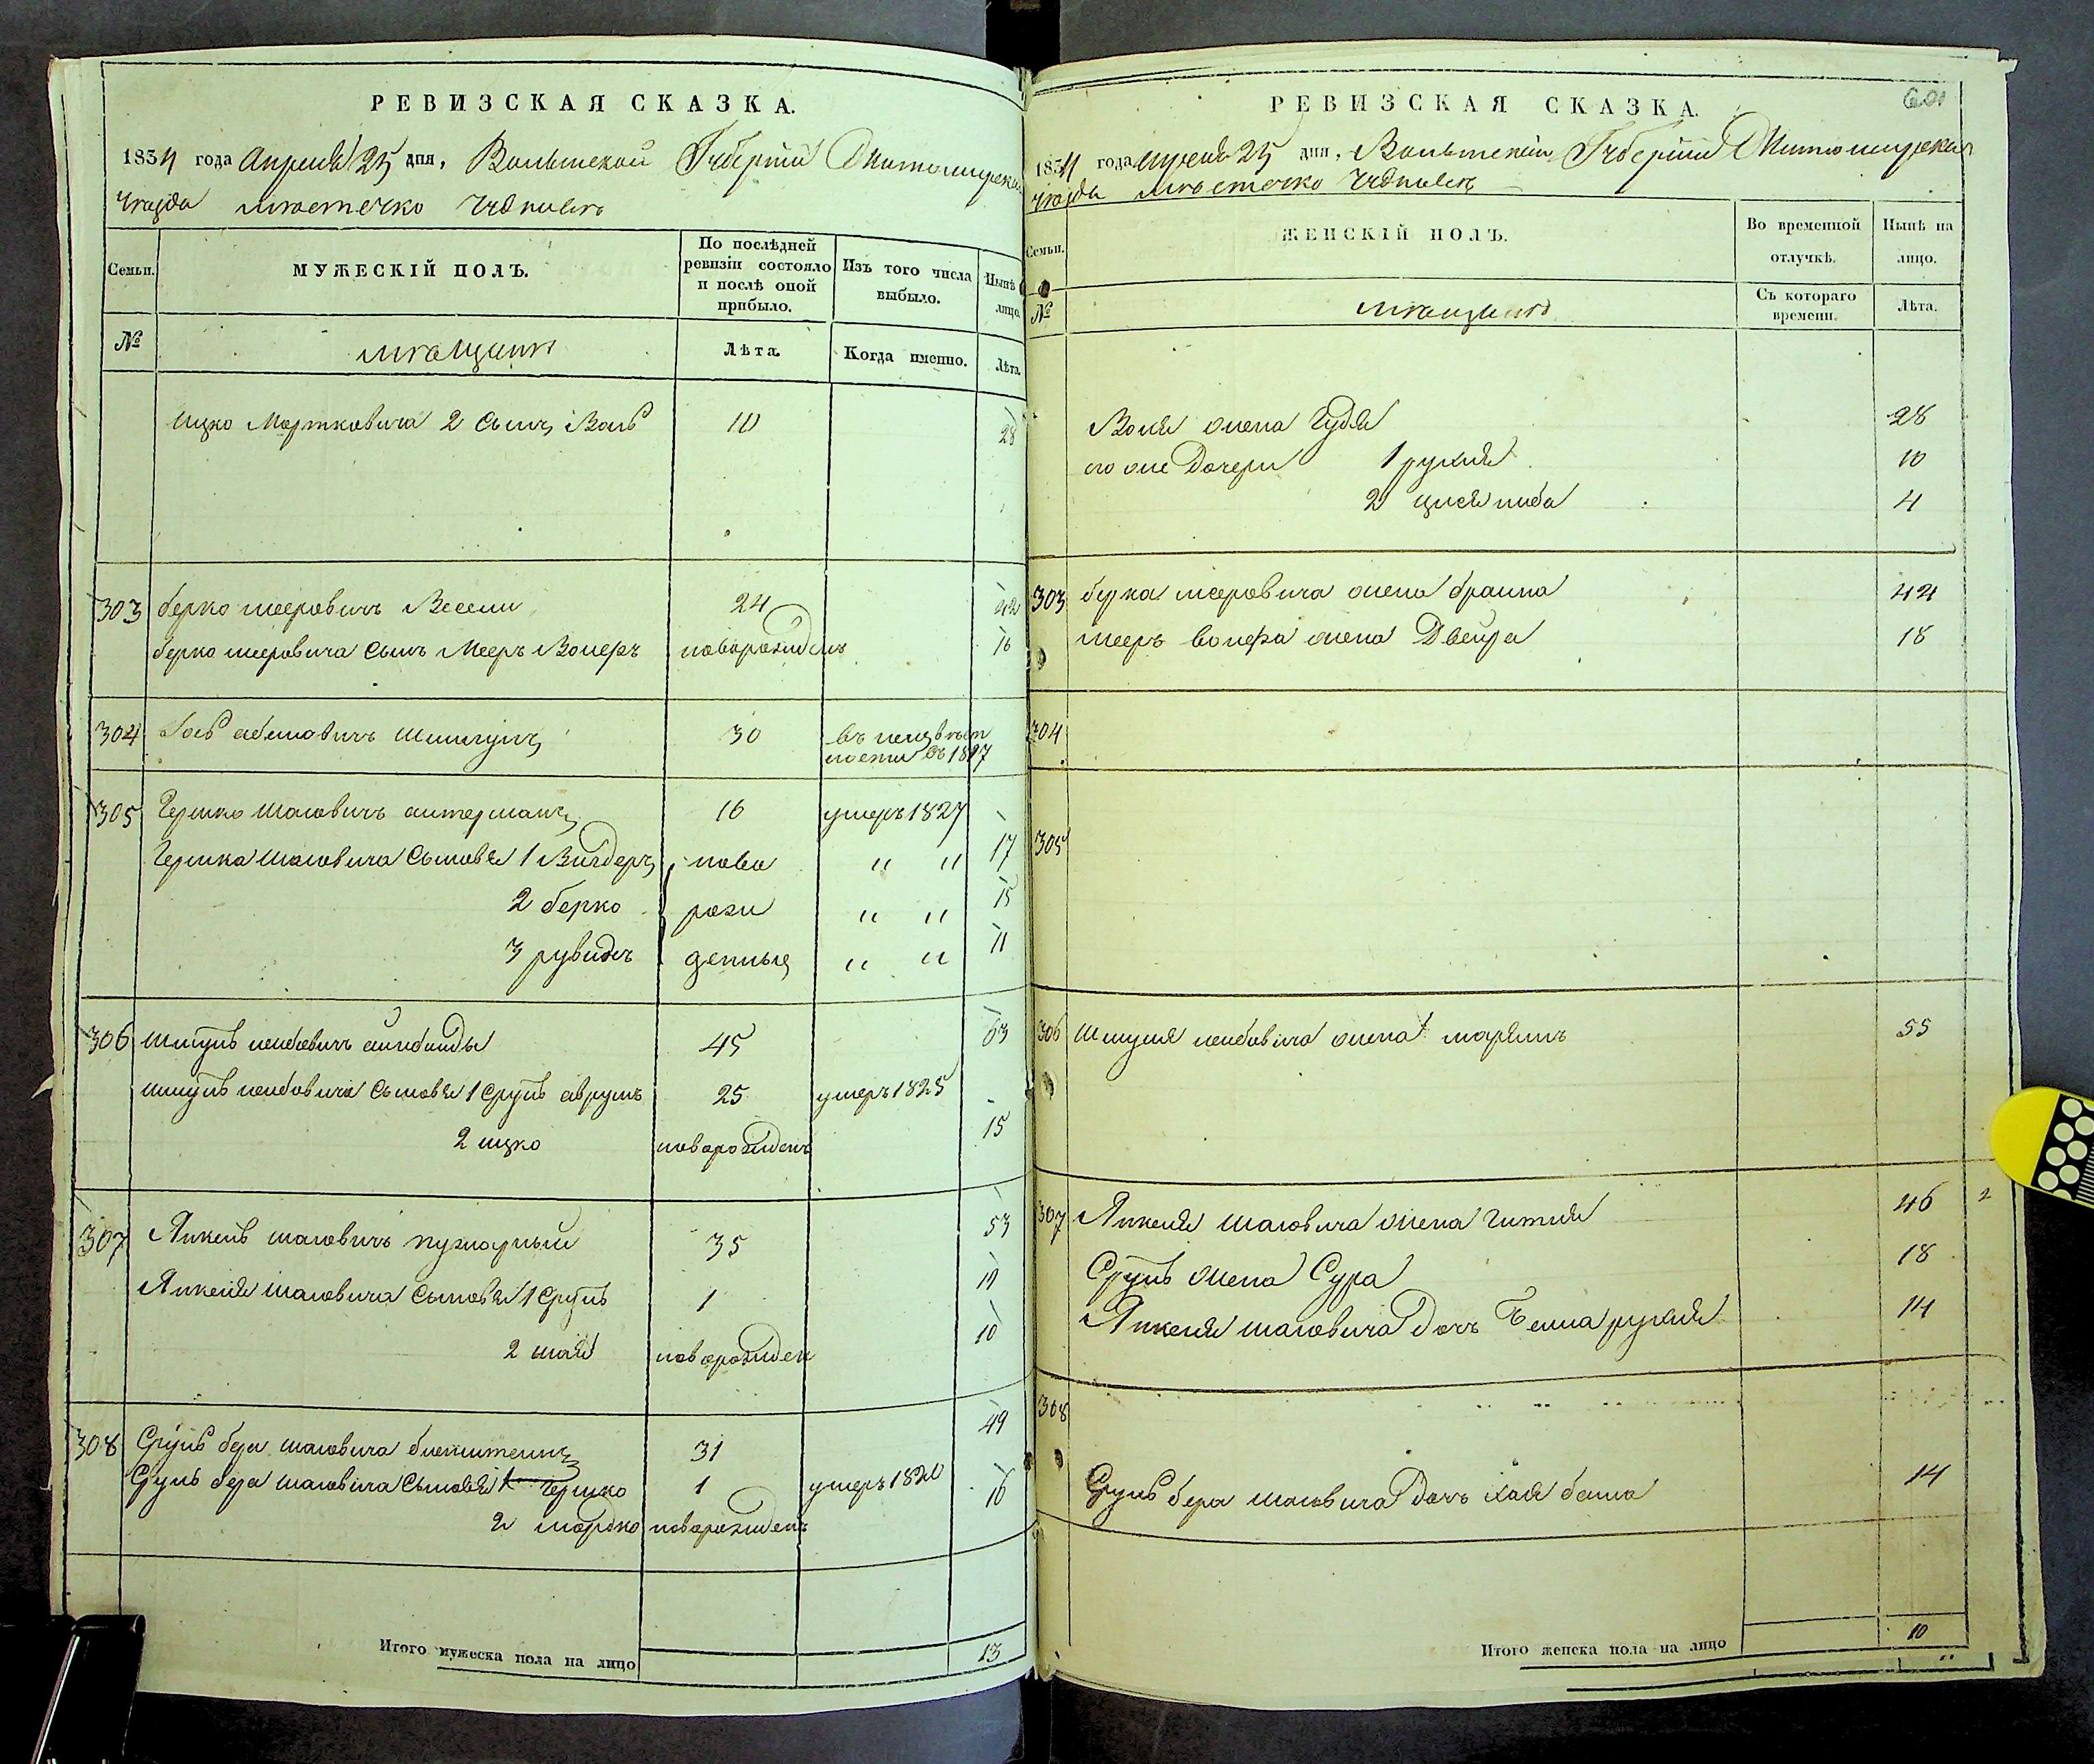 РЕВИЗСКАЯ СКАЗКА.
1834 года Апреля 25 дня, Волынской Губернии Житомирскаго
уезда местечко Чуднов
Семьи.
МУЖЕСКІЙ ПОЛЪ.
По послѣдней ревизіи состояло и послѣ оной прибыло.
Изъ того числа выбыло.
Нынѣ лицо.
№
мещане
Лѣта.
Когда именно.
Лѣта.
Ицко Мортковича 2 сынъ Воль 10 28
303 берко меерович 24 42
берко мееровича сынъ Меер Волф новорожден 16
304 30 въ неизвест
ности въ 1827
305 Гершко шаевичъ 16 умеръ 1827
Гершка шаевича сыновья 1 ново " " 17
2 берко рож " " 15
3 рувин денные " " 11
306 Шмуль лейбович 45 63
шмуль лейбовича сыновья 1 Сруль аврум 25 умеръ 1825
2 ицко новорожденъ 15
307 Янкель шаевичъ 35 53
Янкеля шаевича сыновья 1 Сруль 1 19
2 шая новорожден 10
308 Сруль бер шаевича 31 49
Сруль бера шаевича сыновья 1 Гершко 1 умеръ 1820
2 мордко новорожденъ 16
Итого мужеска пола на лицо 13
601
РЕВИЗСКАЯ СКАЗКА.
1834 года Апреля 25 дня, Волынской Губернии Житомирскаго
уезда местечко Чуднов
Семьи.
ЖЕНСКІЙ ПОЛЪ.
Во временной отлучкѣ.
Нынѣ на лицо.
№
мещане
Съ котораго времени.
Лѣта.
Воля жена Гудя 28
его же дочери 1 рухля 10
2 4
303 берка мееровича жена браина 42
меер волфа жена Двейра 18
304
305
306 Шмуля лейбовича жена марям 55
307 Янкеля шаевича жена гитля 46 2
Сруль жена Сура 18
Янкеля шаевича дочь рухля 14
308
Сруль бера шаевича дочь хая 14
Итого женска пола на лицо 10